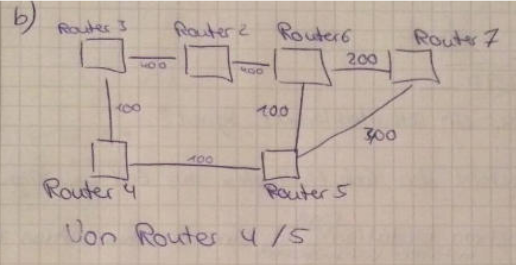 b)
Router 3 Router 2 Router6 Router 7
400 400 200
100 100 300
100
Router 4 Router 5
Von Router 4/5